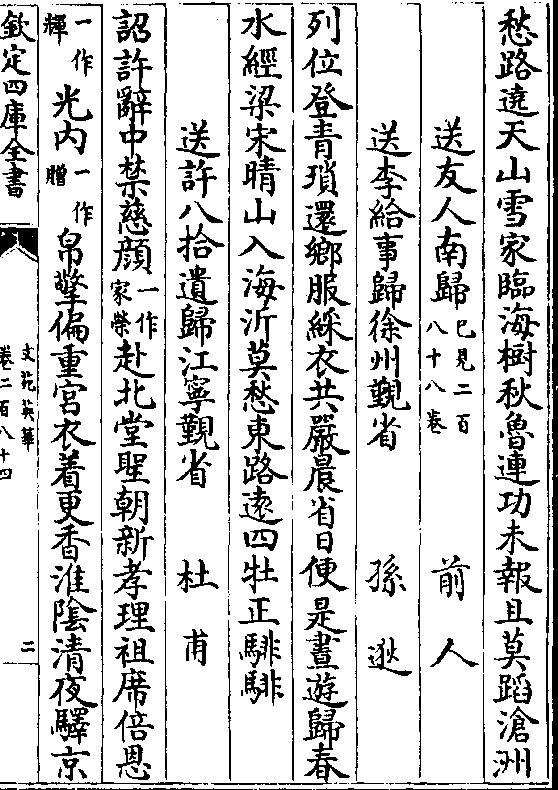 愁路遠天山雪家臨海樹秋魯連功未報且莫蹈滄洲
送友人南歸已見二百八十八卷 前人
送李給事歸徐州覲省 孫逖
列位登青瑣還鄉服綵衣共嚴晨省日便是晝遊歸春
水經梁宋晴山入海沂莫愁東路遠四牡正騑騑
送許八拾遺歸江寧覲省 杜甫
詔許辭中禁慈顔一作家榮赴北堂聖朝新孝理祖席倍恩
輝一作光内一作贈帛擎偏重宮衣着更香淮陰清夜驛京
欽定四庫全書
文苑英華
卷二百八十四
二